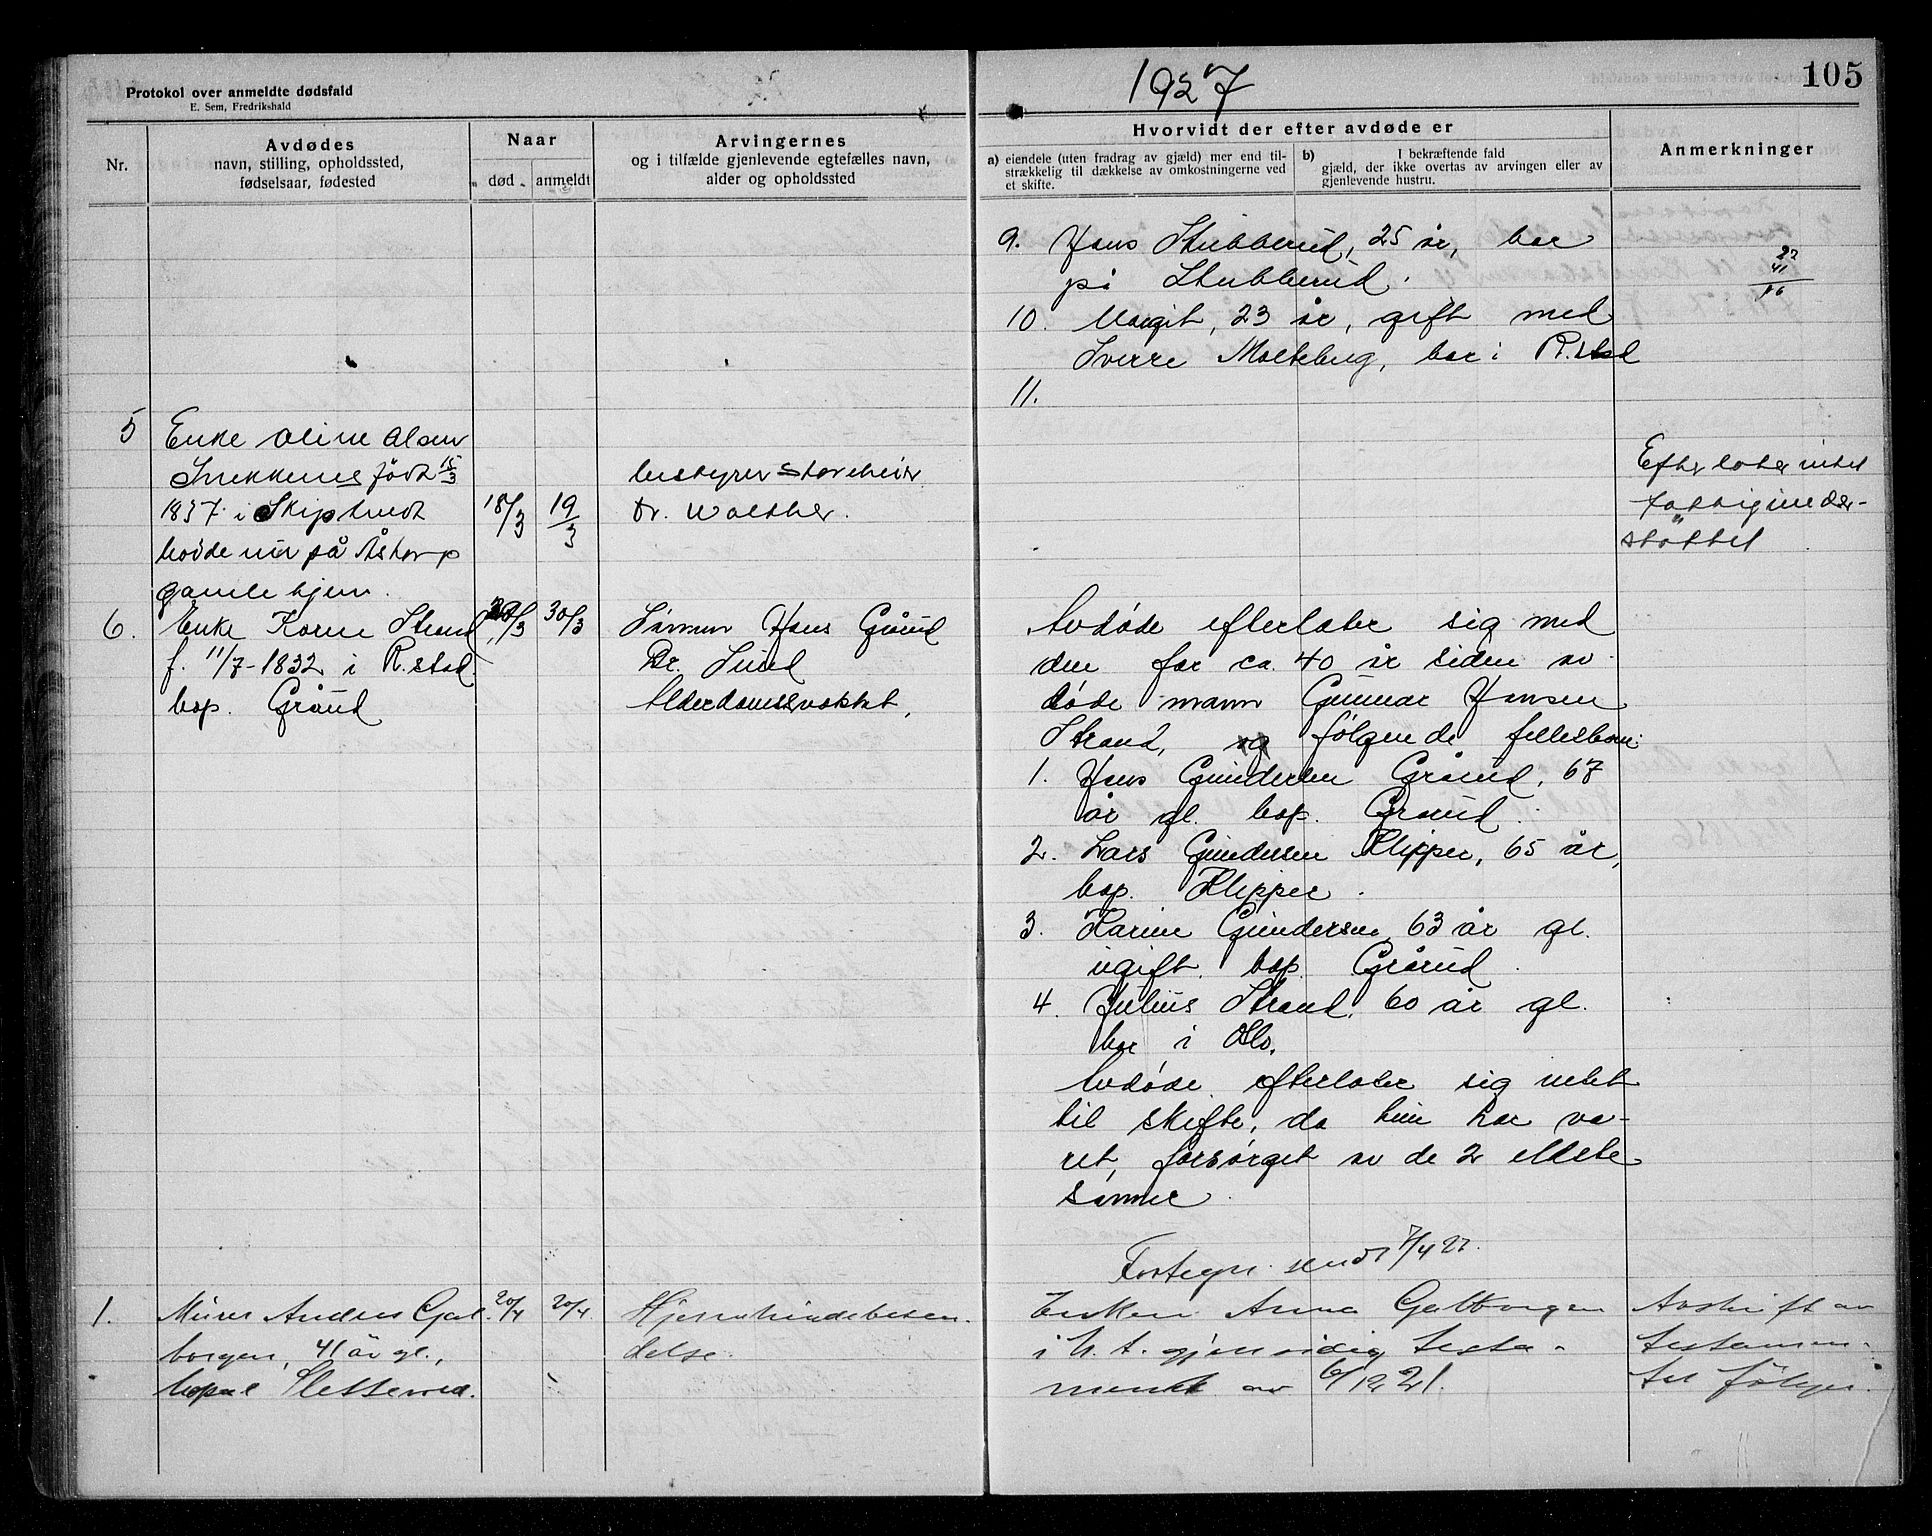 Protokol over anmeldte dødsfald
E. Sem, Fredrikshald
Nr.
Avdødes
navn, stilling, opholdssted,
fødselsaar, fødested
Naar
død
anmeldt
Arvingernes
og i tilfælde gjenlevende egtefælles navn,
alder og opholdssted
5
Enke Oline Olsen
født 15/3
1837 i Skiptvedt
bodde nu på Åstorp
gamlehjem.
18/3
19/3
bestyrer
Dr. Walther.
6.
Enke Karen Strand
f. 11/7-1832 i R.stad.
bop. Gråud
30/3
Sønnen Hans Gråud
Dr. Lund
1.
Murer Anders Gal-
borgen, 41 år gl.,
bopæl
20/4
20/4
Hjernehindebeten-
delse.
1927
105
Hvorvidt der efter avdøde er
a) eiendele (uten fradrag av gjæld) mer end til-
strækkelig til dækkelse av omkostningerne ved
et skifte.
b) I bekræftende fald
gjæld, der ikke overtas av arvingen eller av
gjenlevende hustru.
Anmerkninger
9. Hans Stubberud, 25 år, bor
på Stubberud.
27
41
10. Margit, 23 år, gift med
Sverre Molteberg, bor i R.stad
11.
Efterlater intet
fattigunder-
støttet
Avdøde efterlater sig med
den for ca. 40 år siden av-
døde mann Gunnar Hansen
Strand, følgende fellesbarn:
1. Hans Gundersen Gråud, 67
år gl. bop. Gråud.
2. Lars Gundersen Klipper, 65 år,
bop. Klipper.
3. Karine Gundersen, 63 år gl.
ugift, bop. Gråud.
4. Julius Strand, 60 år gl.
bor i Oslo.
Avdøde efterlater sig intet
til skifte, da hun har væ-
ret forsørget av de 2 eldste
sønner.
Fortegn. sendt 7/4 27.
Enken Anna Galborgen
i h. t. gjensidig testa-
ment av 6/12 21.
Avskrift av
testamen-
tet følger.